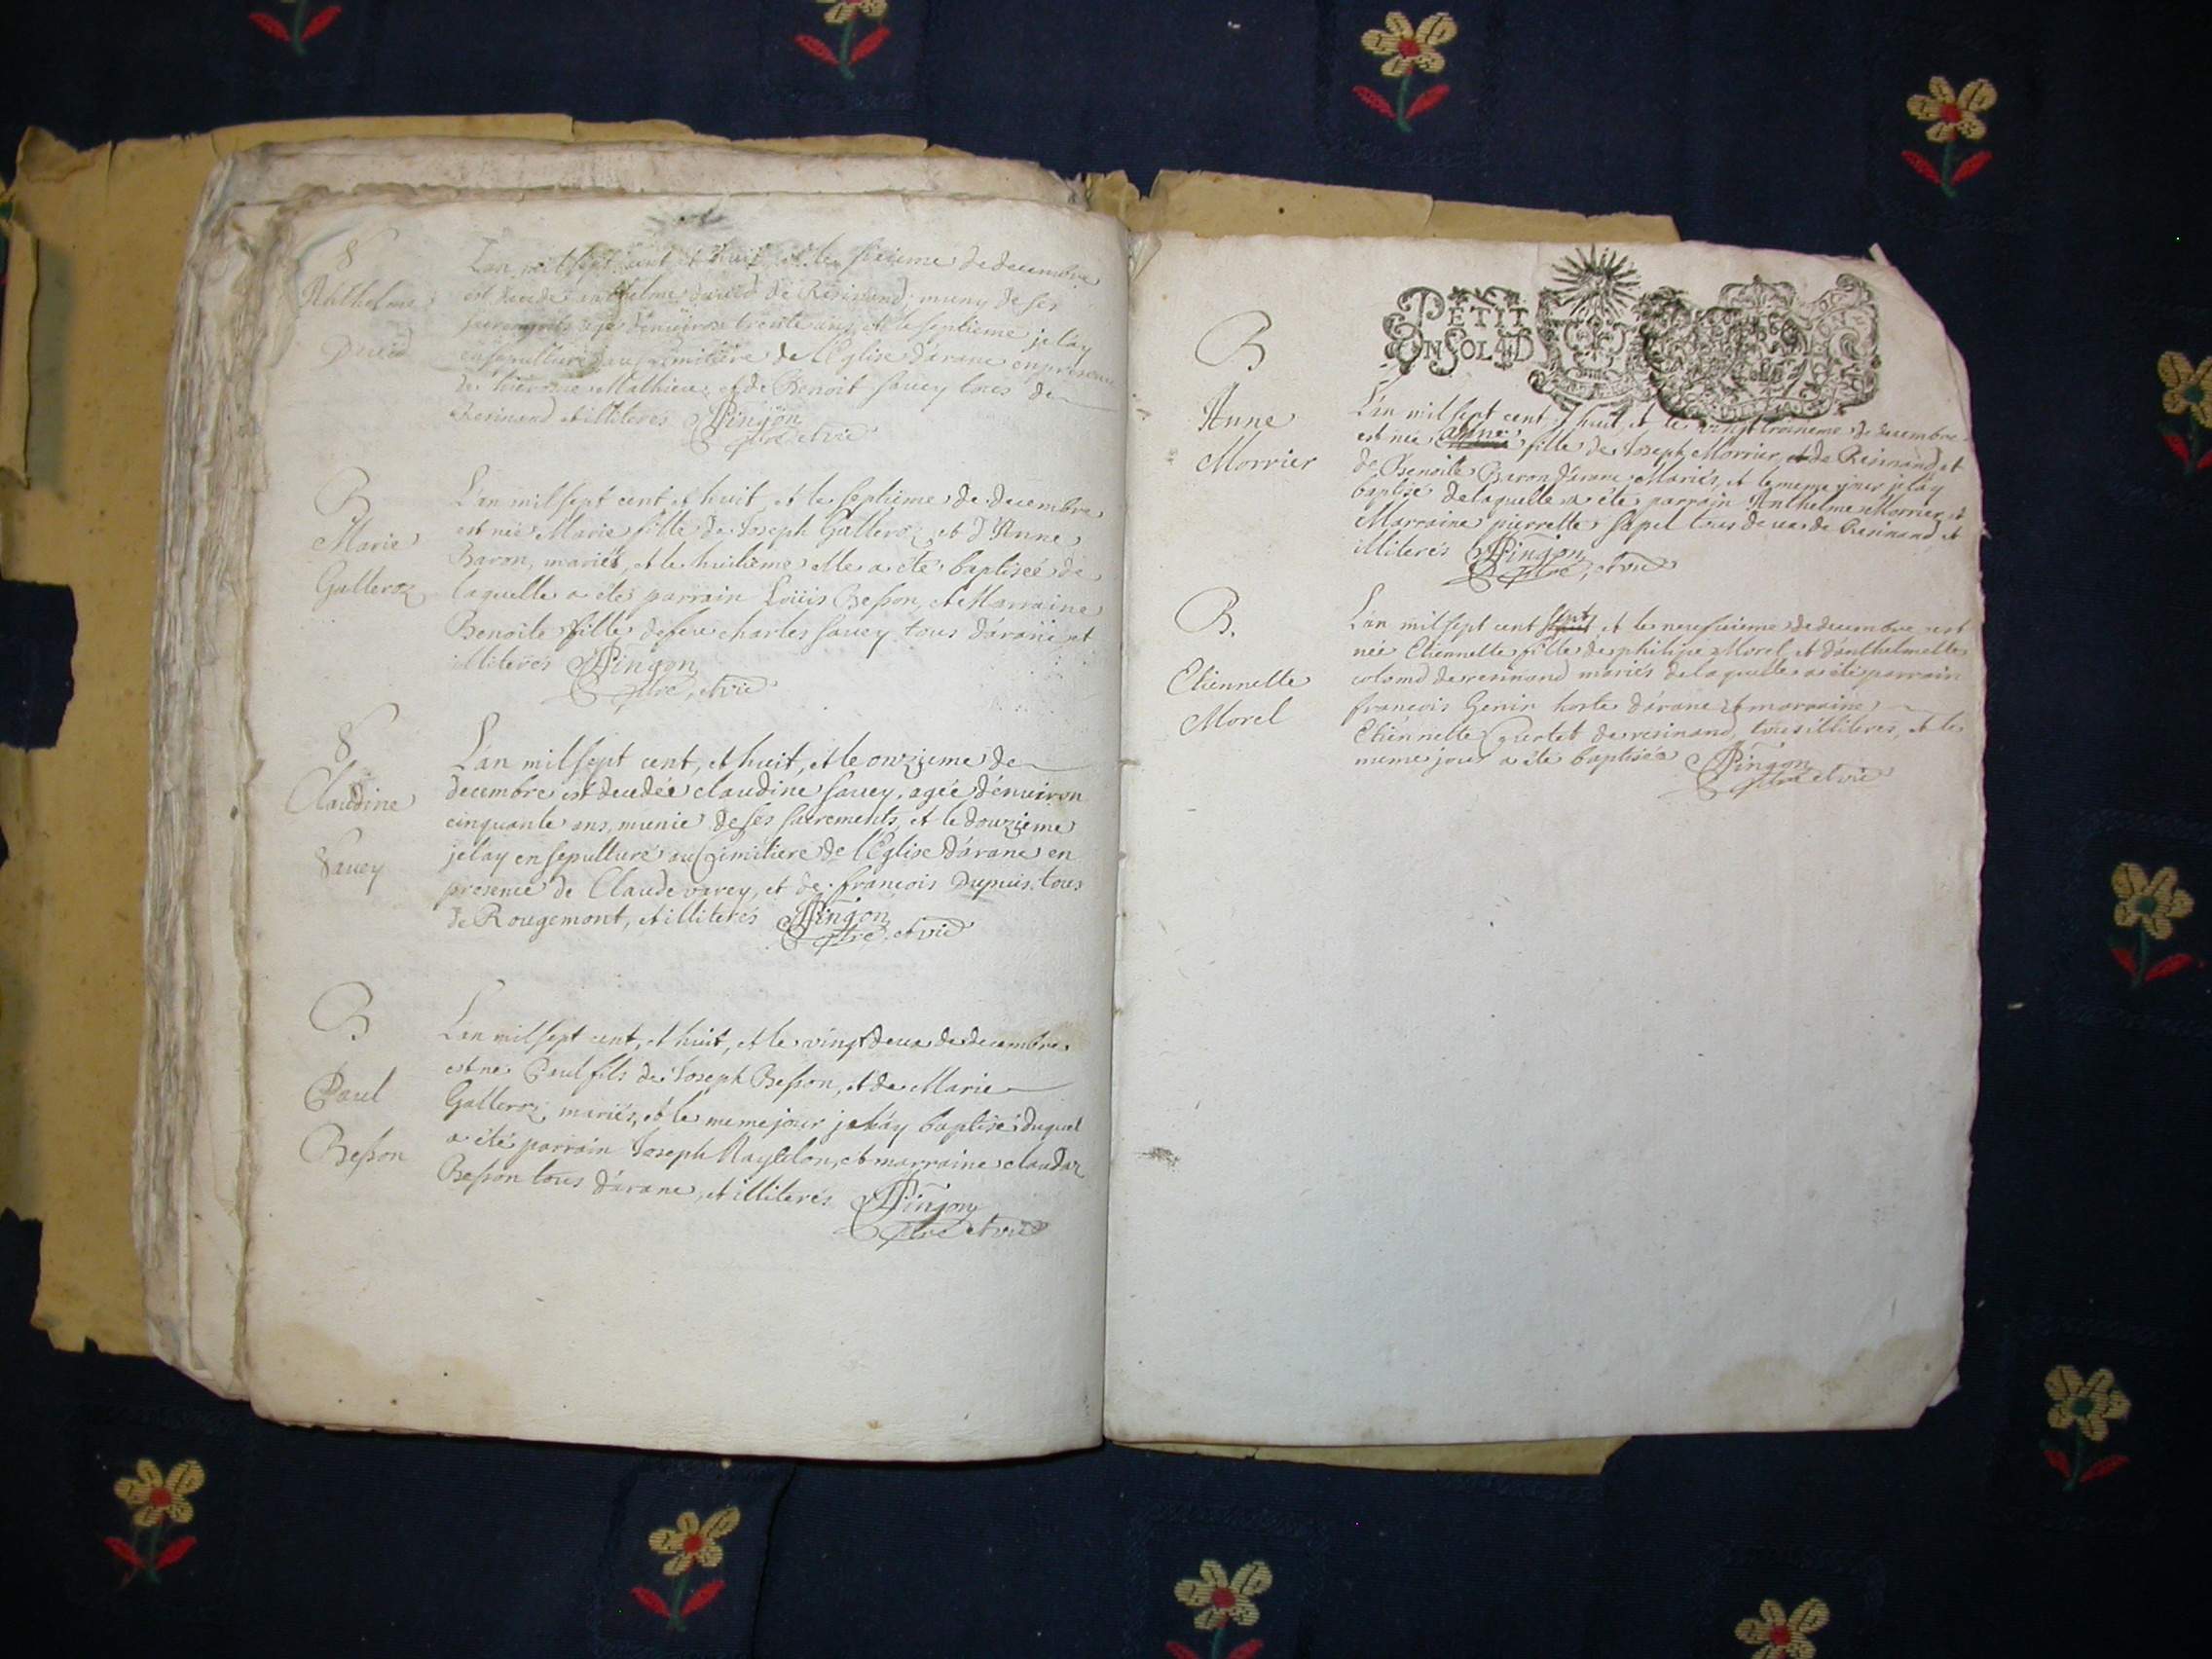 S
Anthelme
David
L'an mil sept cent et huit, et le sixieme de decembre
est decedé anthelme david de Resinand, muny de ses
sacrements agé d'enuiron trente ans, et le septieme je lay
ensepulturé au Cimitiere de l'Eglise d'arane en presence
de hierome Mathieu, et de Benoit sauey tous de
Resinand et illiterés Pingon
ptre et vic
B
Marie
Galleroz
L'an mil sept cent et huit et le septieme de decembre
est née Marie fille de Joseph Galleroz, et d'Anne
Baron, mariés, et le huitieme elle a eté baptiseé de
laquelle a etés parrain Loüis Besson, et Marraine
Benoite fille defeu charles sauey tous d'arane, et
illiterés Pingon
ptre, et vic
S
Claudine
Sauey
L'an mil sept cent, et huit, et le onzieme de
decembre est decedée claudine sauey, ageé d'enuiron
cinquante ans, munie de ses sacrements, et le douzieme
je lay ensepulturé au Cimitiere de l'Eglise d'arane en
presence de Claude varey, et de francois Dupuis, tous
de Rougemont, et illiterés Pingon
ptre, et vic
B
Paul
Besson
L'an mil sept cent, et huit, et le vingt deux de decembre
est né Paul fils de Joseph Besson, et de Marie
Galleroz mariés, et le meme jour je láy baptisé duquel
a été parrain Joseph, et marraine claudaz
Besson tous d'arane, et illiterés Pingon
ptre et vic
PETIT
UN SOL 4 D
B
Anne
Morrier
L'an mil sept cent, et huit, et le vingt troisieme de decembre
est née anne fille de Joseph Morrier, et de Resinand, et
de Benoite Baron d'arane Mariés, et le meme jour je láy
baptisé de laquelle a été parrain Anthelme Morrier, et
Marraine pierrette sapel tous deux de Resinand, et
illiterés Pingon
ptre, et vic
B.
Etiennette
Morel
L'an mil sept cent sept et le neufuieme de decembre est
née Etiennette fille de philipe Morel, et d'anthelmette
colomd de resinand mariés de laquelle a été parrain
francois Genin hoste d'arane et marraine
Etiennette Quertet de resinand, tous illiteres, et le
meme jour a été baptisée Pingon
ptre et vic